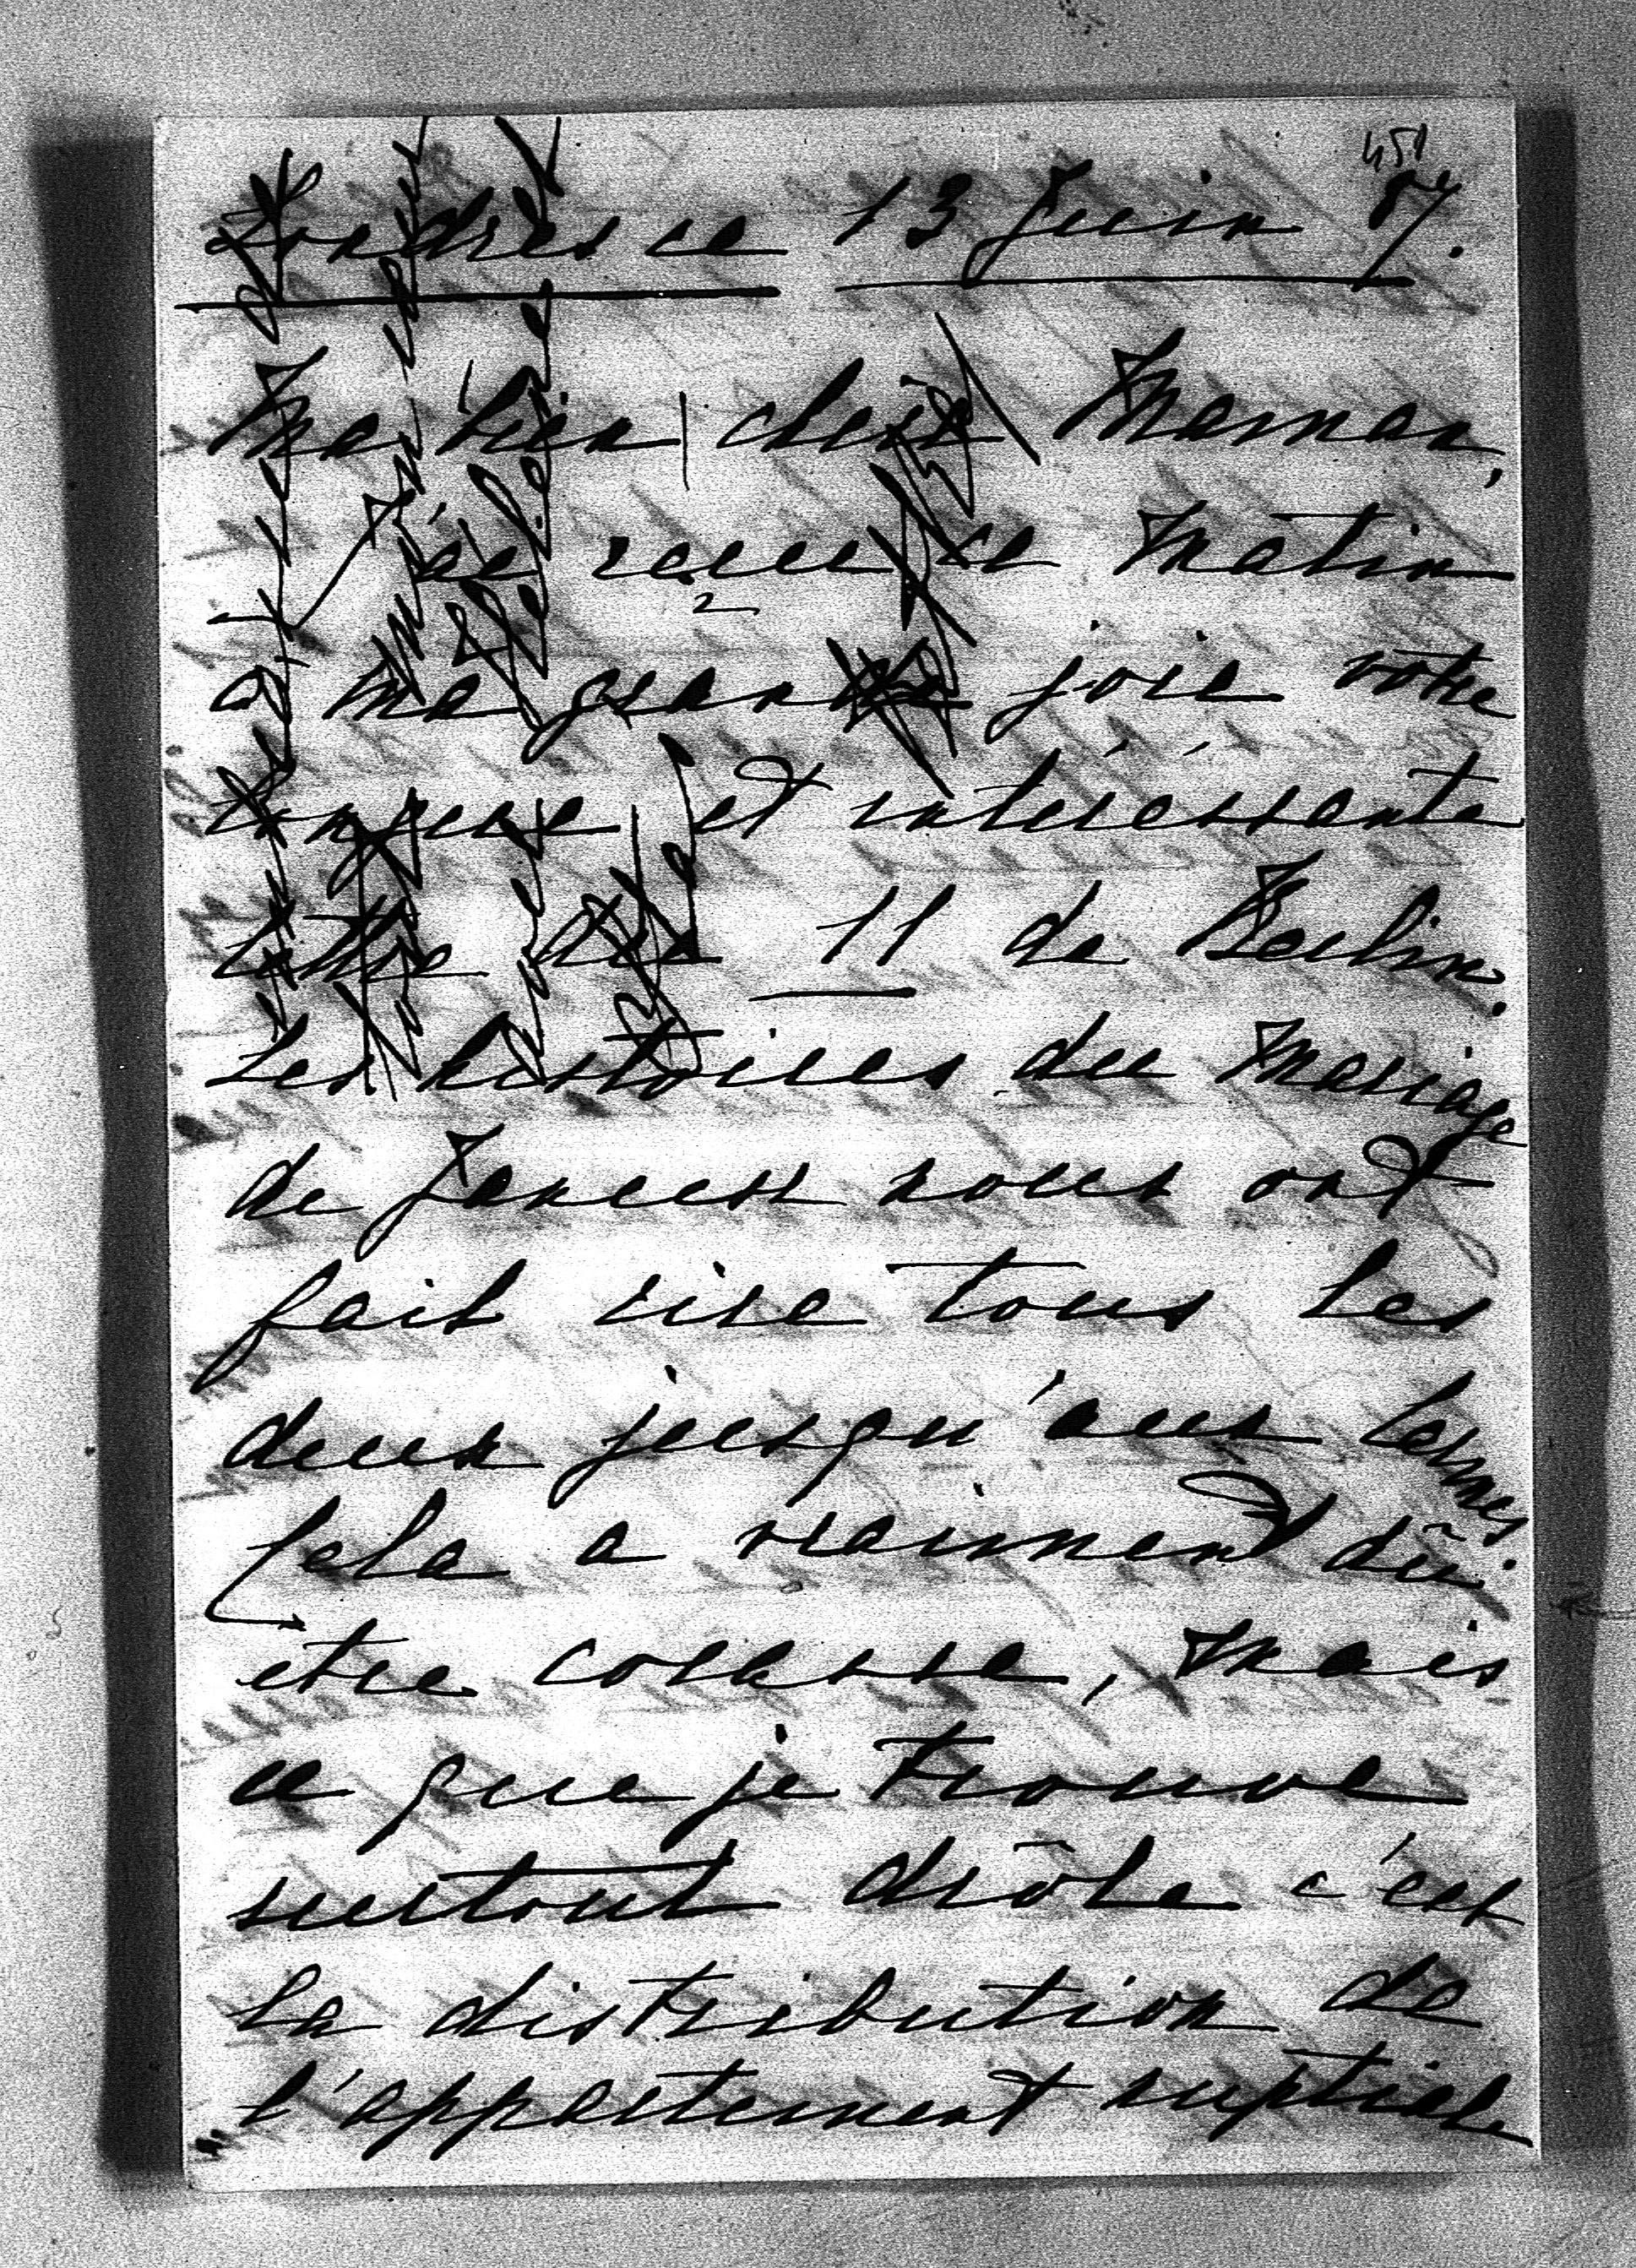 451
Londres ce 13 Juin 87.
Ma bien chère Maman,
J'ai reçu ce matin
à ma grande joie votre
longue et intéressante
lettre du 11 de Berlin.
Les histoires du mariage
de nous ont
fait rire tous les
deux jusqu'aux larmes.
Cela a vraiment dû
être cocasse, mais
ce que je trouve
surtout drôle c'est
la distribution de
l'appartement nuptial